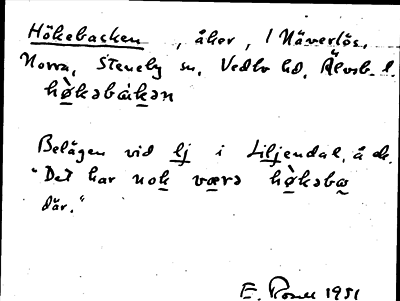 Hökebacken, åker, 1 Näverlös,
Norra, Steneby sn, Vedbo hd, Älvsb. l.
hø̀kəbàkən
Belägen vid lj i Liljendal, å ds.
"Det har nok værə hø̀kəbɑ
där."
E. 1951